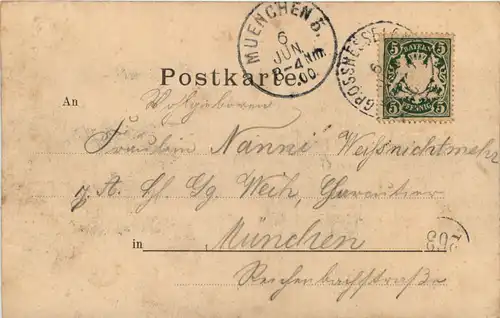 MUENCHEN 5.
6
JUN.
3-4 Nm.
00.
GROSSHESSE
BAYERN
5 5
5 5
PFENNIG
Postkarte.
An Wolgeboren
Fräulein Nanni Weißnichtmehr
z. A. H Gg. Weih, Charcutier
in München
203
Reichenbachstraße